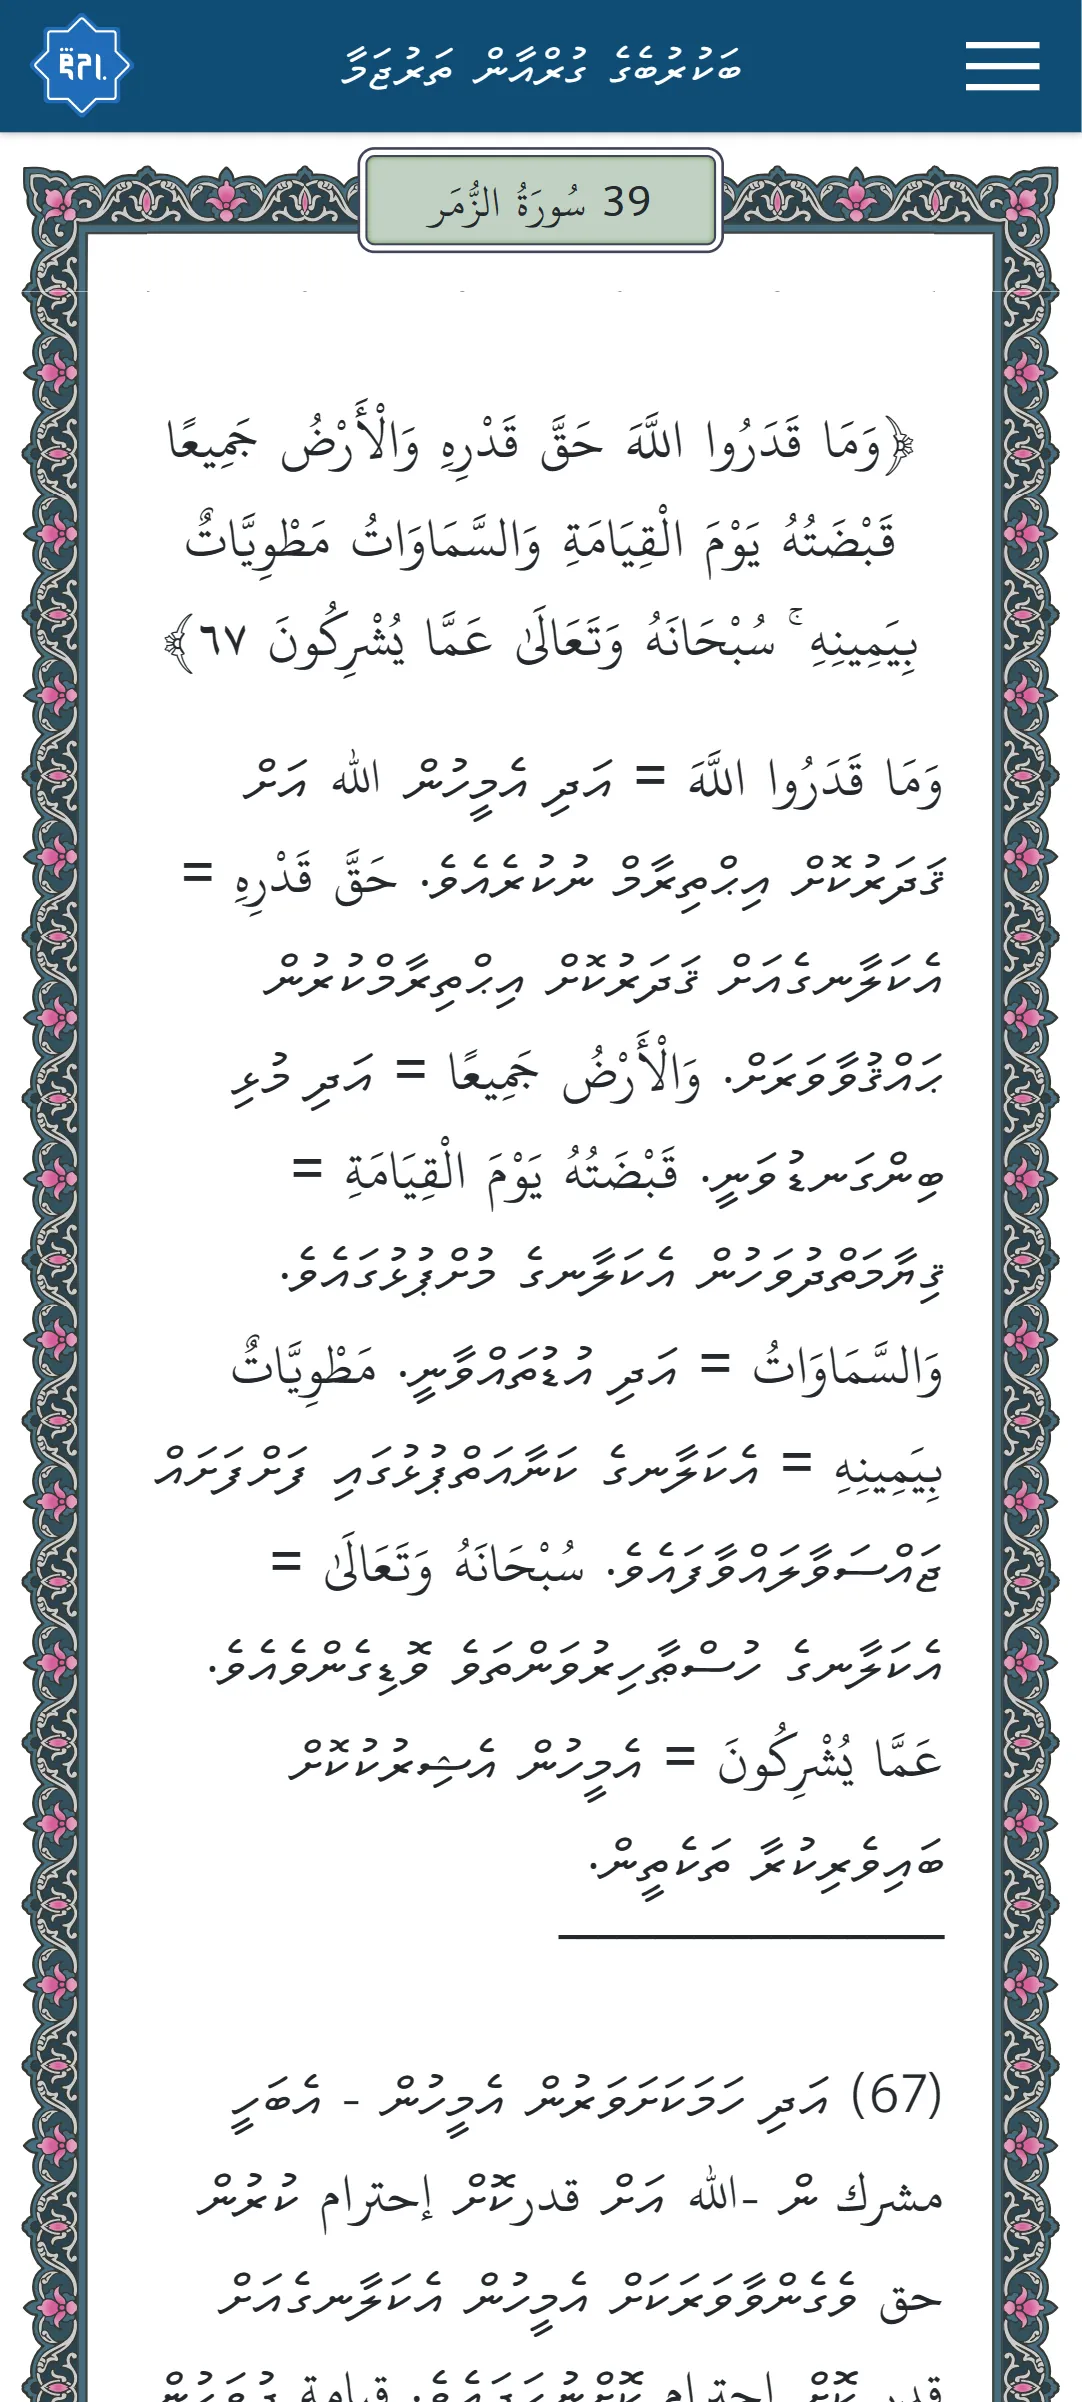 ބަކުރުބެގެ ގުރްއާން ތަރުޖަމާ
39 سُورَةُ الزُّمَر
﴿وَمَا قَدَرُوا اللَّهَ حَقَّ قَدْرِهِ وَالْأَرْضُ جَمِيعًا
قَبْضَتُهُ يَوْمَ الْقِيَامَةِ وَالسَّمَاوَاتُ مَطْوِيَّاتٌ
بِيَمِينِهِ ۚ سُبْحَانَهُ وَتَعَالَىٰ عَمَّا يُشْرِكُونَ ٦٧﴾
وَمَا قَدَرُوا اللَّهَ = އަދި އެމީހުން الله އަށް
ޤަދަރުކޮށް އިޙްތިރާމް ނުކުރެއެވެ. حَقَّ قَدْرِهِ =
އެކަލާނގެއަށް ޤަދަރުކޮށް އިޙްތިރާމްކުރުން
ޙައްޤުވާވަރަށް. وَالْأَرْضُ جَمِيعًا = އަދި މުޅި
ބިންގަނޑުވަނީ. قَبْضَتُهُ يَوْمَ الْقِيَامَةِ =
ޤިޔާމަތްދުވަހުން އެކަލާނގެ މުށްޕުޅުގައެވެ.
وَالسَّمَاوَاتُ = އަދި އުޑުތައްވާނީ. مَطْوِيَّاتٌ
بِيَمِينِهِ = އެކަލާނގެ ކަނާއަތްޕުޅުގައި ފަށްފަށައް
ޖައްސަވާލައްވާފައެވެ. سُبْحَانَهُ وَتَعَالَىٰ =
އެކަލާނގެ ހުސްޠާހިރުވަންތަވެ ވޮޑިގެންވެއެވެ.
عَمَّا يُشْرِكُونَ = އެމީހުން އެޝިރުކުކޮށް
ބައިވެރިކުރާ ތަކެތީން.
(67) އަދި ހަމަކަށަވަރުން އެމީހުން - އެބަހީ
مشرك ން -الله އަށް قدرކޮށް إحترام ކުރުން
حق ވެގެންވާވަރަކަށް އެމީހުން އެކަލާނގެއަށް